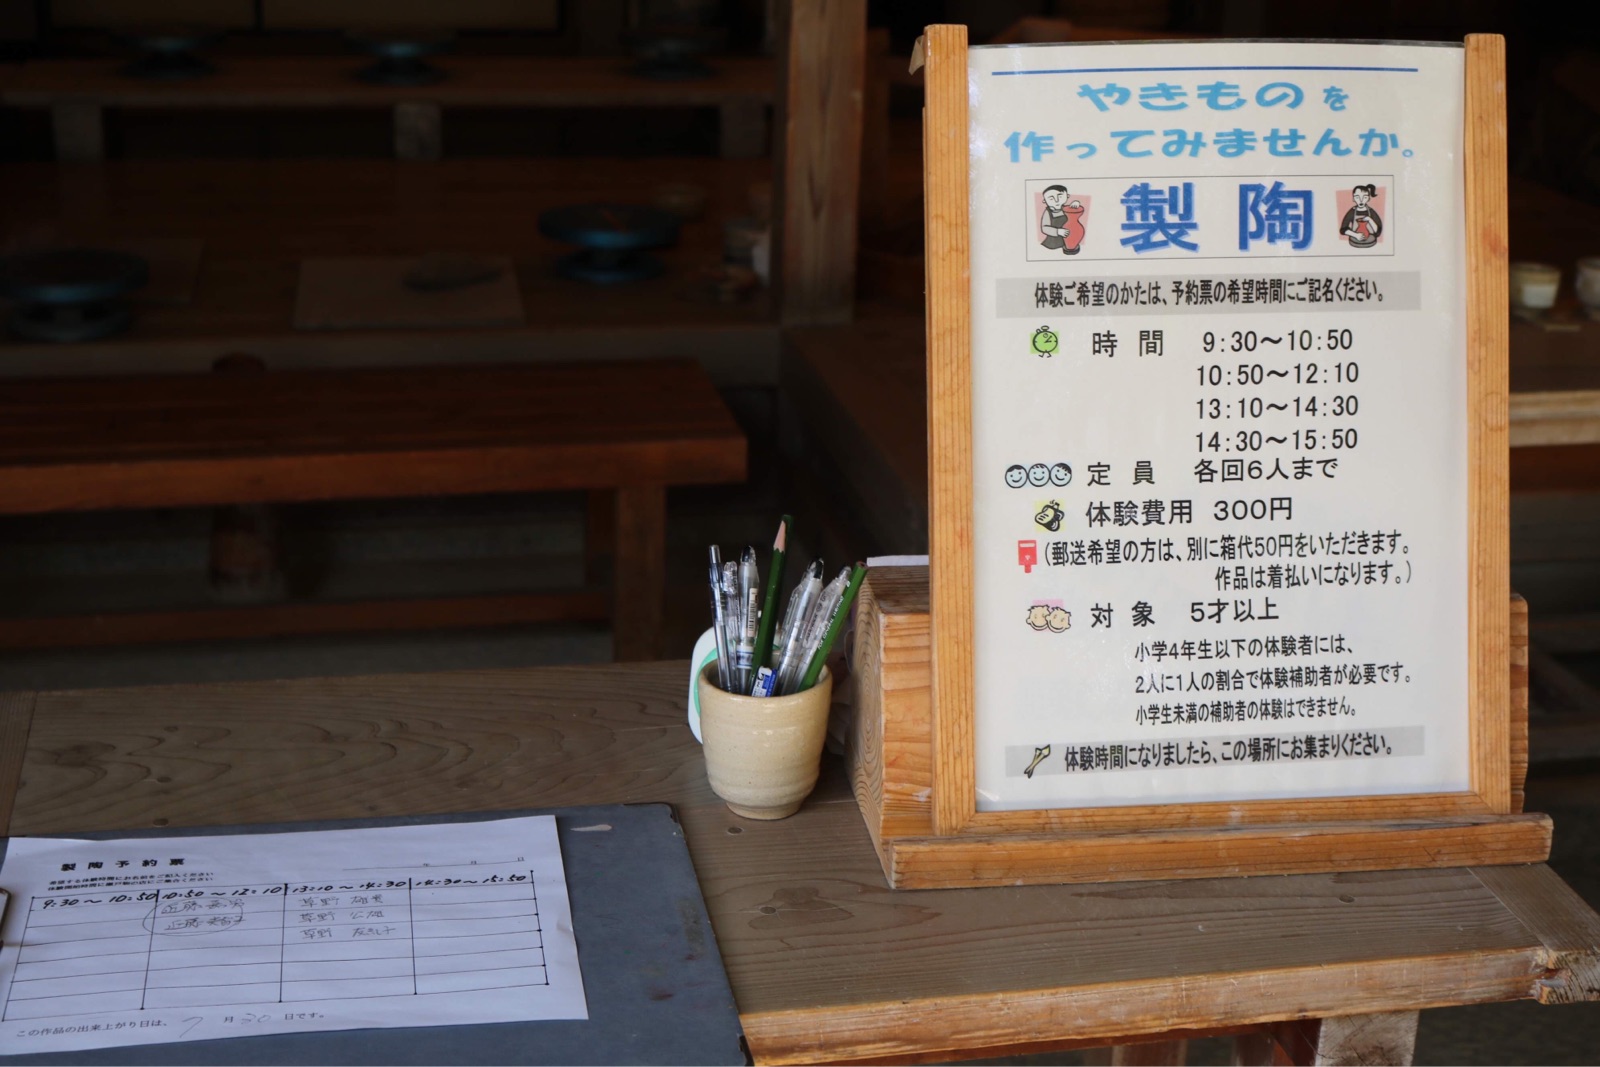 やきものを
作ってみませんか。
製陶
体験ご希望のかたは、予約票の希望時間にご記名ください。
時間 9:30～10:50
10:50～12:10
13:10～14:30
14:30～15:50
定員 各回6人まで
体験費用 300円
(郵送希望の方は、別に箱代50円をいただきます。
作品は着払いになります。)
対象 5才以上
小学4年生以下の体験者には、
2人に1人の割合で体験補助者が必要です。
小学生未満の補助者の体験はできません。
体験時間になりましたら、この場所にお集まりください。
製陶予約票
年 月 日
希望する体験時間にお名前をご記入ください
9:30～10:50 10:50～12:10 13:10～14:30 14:30～15:50
近藤 草野
近藤 草野
草野
この作品の出来上がり日は、7月30日です。